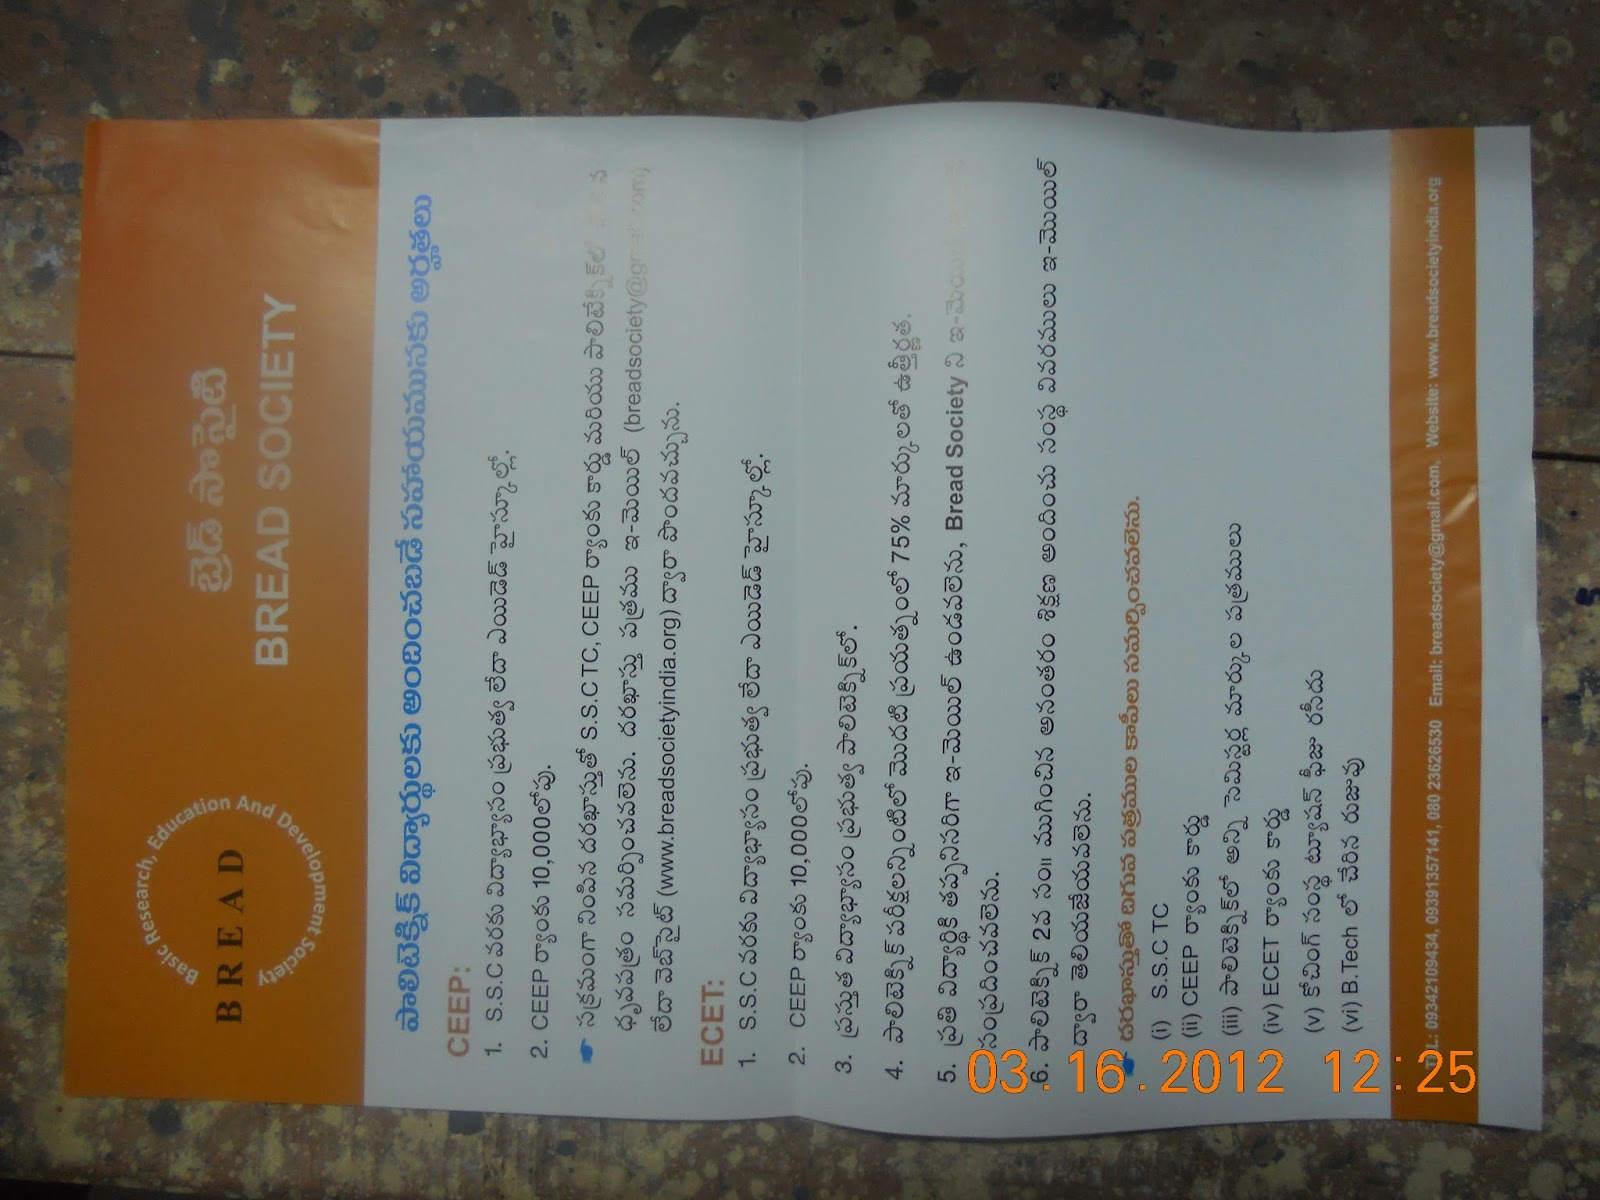 Basic Research, Education And Development Society
BREAD
బ్రెడ్ సొసైటీ
BREAD SOCIETY
పాలిటెక్నిక్ విద్యార్థులకు అందించబడే సహాయమునకు అర్హతలు
CEEP:
1. S.S.C వరకు విద్యాభ్యాసం ప్రభుత్వ లేదా ఎయిడెడ్ హైస్కూల్లో.
2. CEEP ర్యాంకు 10,000లోపు.
సక్రమంగా నింపిన దరఖాస్తుతో S.S.C TC, CEEP ర్యాంకు కార్డు మరియు పాలిటేక్నిక్‌లో
ధృవపత్రం సమర్పించవలెను. దరఖాస్తు పత్రము ఇ-మెయిల్ (breadsociety@gmail.com)
లేదా వెబ్‌సైట్ (www.breadsocietyindia.org) ద్వారా పొందవచ్చును.
ECET:
1. S.S.C వరకు విద్యాభ్యాసం ప్రభుత్వ లేదా ఎయిడెడ్ హైస్కూల్లో.
2. CEEP ర్యాంకు 10,000లోపు.
3. ప్రస్తుత విద్యాభ్యాసం ప్రభుత్వ పాలిటెక్నిక్‌లో.
4. పాలిటెక్నిక్ పరీక్షలన్నింటిలో మొదటి ప్రయత్నంలో 75% మార్కులతో ఉత్తీర్ణత.
5. ప్రతి విద్యార్థికి తప్పనిసరిగా ఇ-మెయిల్ ఉండవలెను, Bread Society ని ఇ-మెయిల్
సంప్రదించవలెను.
6. పాలిటెక్నిక్ 2వ సం॥ ముగించిన అనంతరం శిక్షణ అందించు సంస్థ వివరములు ఇ-మొయిల్
ద్వారా తెలియజేయవలెను.
దరఖాస్తుతో దిగువ పత్రముల కాపీలు సమర్పించవలెను.
(i) S.S.C TC
(ii) CEEP ర్యాంకు కార్డు
(iii) పాలిటెక్నిక్‌లో అన్ని సెమిస్టర్ల మార్కుల పత్రములు
(iv) ECET ర్యాంకు కార్డు
(v) కోచింగ్ సంస్థ ట్యూషన్ ఫీజు రసీదు
(vi) B.Tech లో చేరిన రుజువు
TEL: 09342109434, 09391357141, 080 23626530 Email: breadsociety@gmail.com, Website: www.breadsocietyindia.org
03.16.2012 12:25